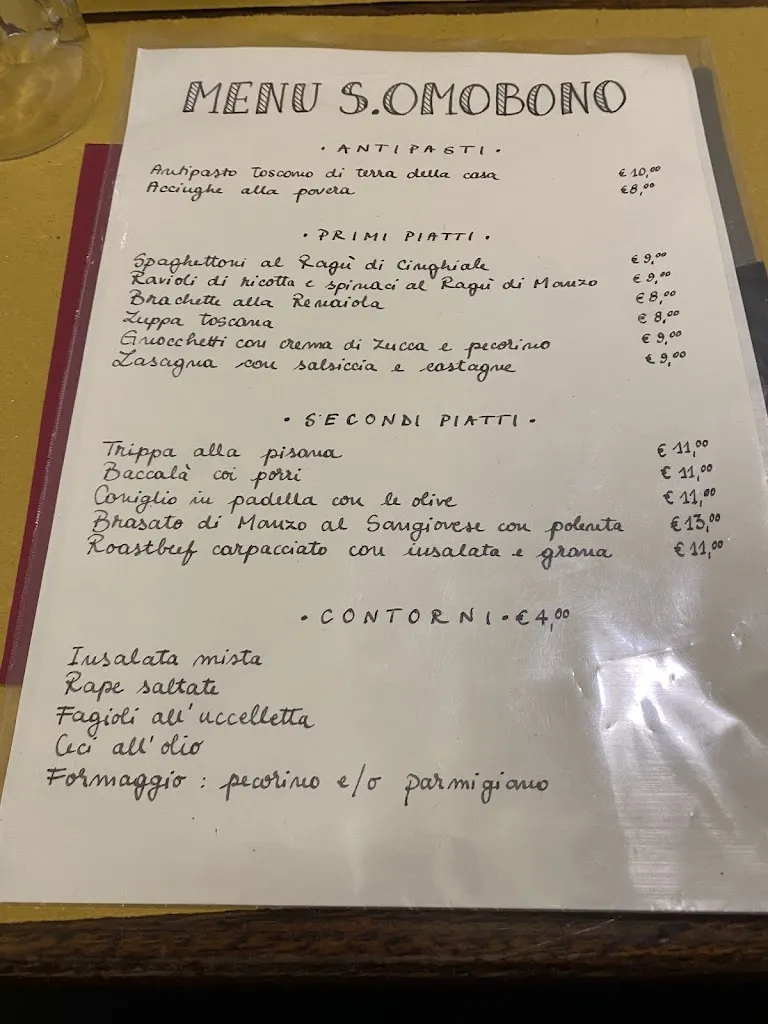 MENU S.OMOBONO
· ANTIPASTI ·
Antipasto Toscano di terra della casa € 10,00
Acciughe alla povera €8,00
· PRIMI PIATTI ·
Spaghettoni al Ragù di Cinghiale € 9,00
Ravioli di ricotta e spinaci al Ragù di Manzo € 9,00
Brachette alla Renaiola € 8,00
Zuppa Toscana € 8,00
Gnocchetti con crema di zucca e pecorino € 9,00
Lasagna con salsiccia e castagne € 9,00
· SECONDI PIATTI ·
Trippa alla pisana € 11,00
Baccalà coi porri € 11,00
Coniglio in padella con le olive € 11,00
Brasato di Manzo al Sangiovese con polenta €13,00
Roastbeef carpacciato con insalata e grana € 11,00
· CONTORNI · € 4,00
Insalata mista
Rape saltate
Fagioli all'uccelletta
Ceci all'olio
Formaggio : pecorino e/o parmigiano